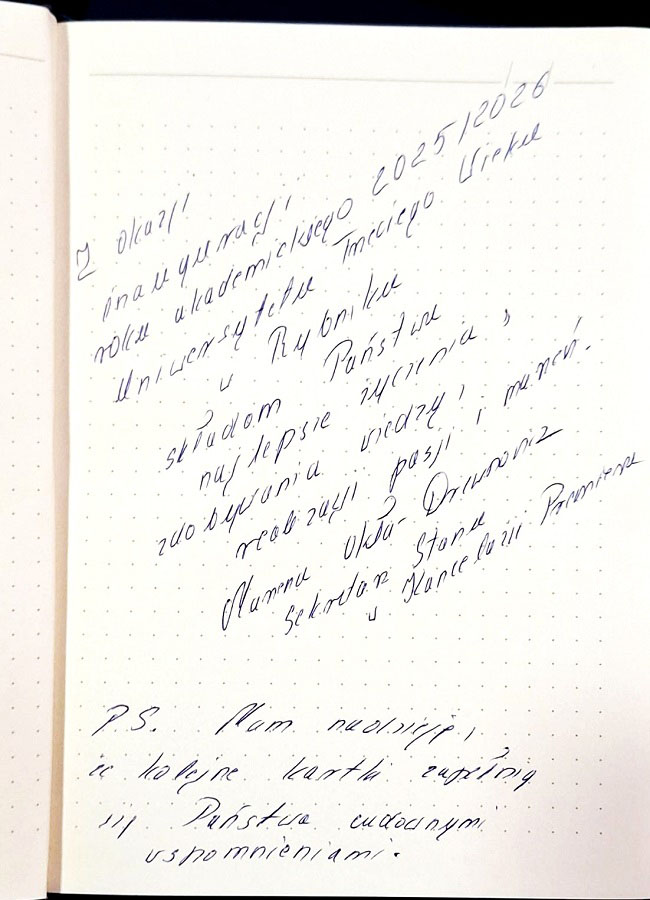 Z okazji
inauguracji
roku akademickiego 2025/2026
Uniwersytetu Trzeciego Wieku
w Rybniku
składam Państwu
najlepsze życzenia,
zdobywania wiedzy,
realizacji pasji i marzeń.
Marzena Okła-Drewnowicz
Sekretarz Stanu
w Kancelarii Premiera
P.S. Mam nadzieję,
że kolejne kartki zapełnią
się Państwa cudownymi
wspomnieniami.